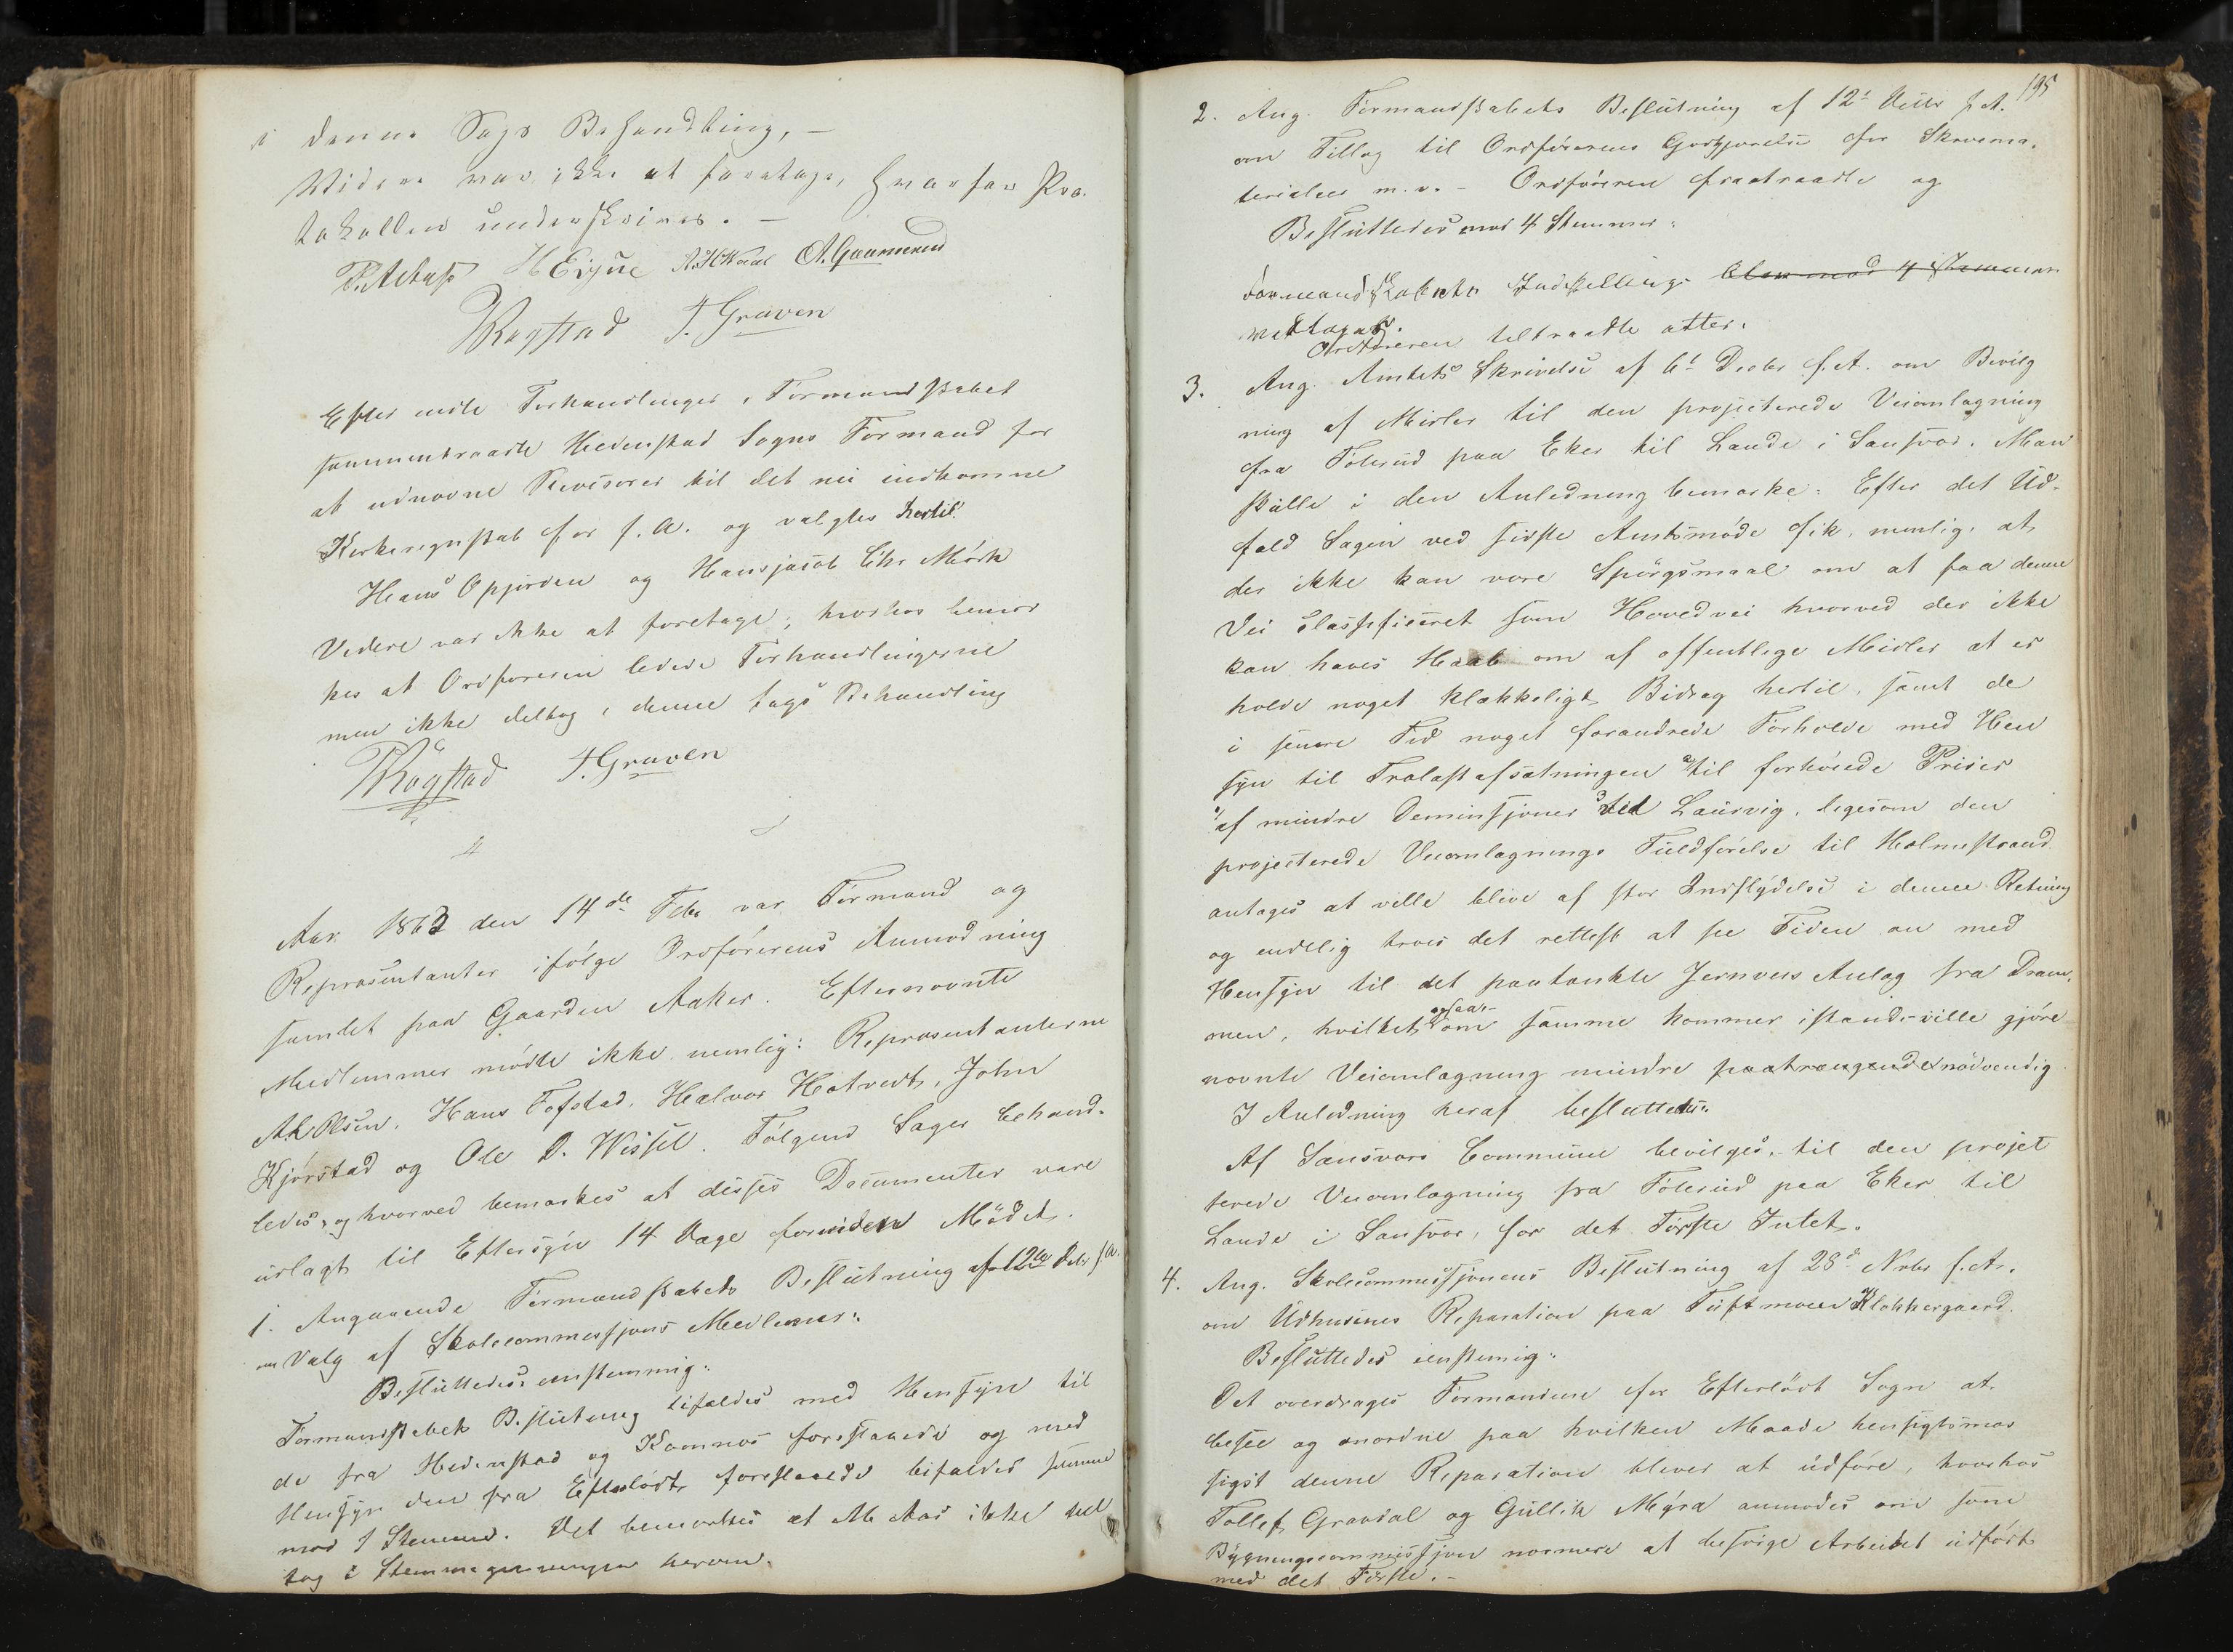 i denne Sags Behandling, —
Videre var ikke at foretage, hvorfor Pro-
tokollen underskrives. —
H Eigne A. H. Waal A. Gaamerud
Rogstad T. Graven
Efter endte Forhandlinger i Formandskabet
sammentraadte Hedenstad Sogns Formænd for
at udnævne Revisorer til det nu indkomne
Kirkeregnskab for f. A. og valgtes hertil
Hans Opjorden og Hansjacob Chr Mörk
Videre var ikke at foretage; hvorhos bemær
kes at Ordføreren ledede Forhandlingerne
men ikke deltog i denne Sags Behandling
Rogstad T. Graven
Aar 1863 den 14de Febr var Formænd og
Repræsentanter ifølge Ordførerens Anmodning
samlet paa Gaarden Aaker. Efternævnte
Medlemmer mødte ikke nemlig: Repræsentanterne
A. K Olsen, Hans Fofstad, Halvor Hotvedt, John
Kjørstad og Ole D. Wissel. Følgende Sager behand-
ledes, og hvorved bemærkes at disses Documenter vare
udlagt til Eftersyn 14 Dage forinden Mødet.
1. Angaaende Formandskabets Beslutning af 12te Debr f. A.
om Valg af Skolecommissjons Medlemer:
Besluttedes: enstemmig:
Formandskabets Beslutning bifaldes med Hensyn til
de fra Hedenstad og Komnæs foreslaaede og med
Hensyn den fra Eftelødt foreslaaede bifaldes samme
mod 1 Stemme. Det bemærkes at M Aas ikke del
tog i Stemmegivningen herom.
195
2. Ang. Formandskabets Beslutning af 12t f. A.
om Tillæg til Ordførerens Godtgjørelse for Skrivema-
terialier m. v. – Ordføreren fratraadte og
Besluttedes mod 4 Stemmer:
Formandskabets Indstilling blev mod 4 Stemmer
vedtages.
Ordføreren tiltraadte atter.
3. Ang. Amtets Skrivelse af 6t Decbr f. A. om Bevilg
ning af Midler til den projecterede Veiomlægning
fra Tolerud paa Eker til Lande i Sansvær. Man
skulle i den Anledning bemærke: Efter det Ud-
fald Sagen ved sidste Amtsmøde fik, nemlig, at
der ikke kan være Spørgsmaal om at faa denne
Vei classificeret som Hovedvei hvorved der ikke
kan haves Haab om af offentlige Midler at er
holde noget klækkeligt Bidrag hertil, samt de
i senere Tid noget forandrede Forholde med Hen
syn til Trælastafsætningen 2/ til forhøiede Priser
1/ af mindre Deminsjoner 3 ved Laurvig, ligesom den
projecterede Veiomlægnings Fuldførelse til Holmestrand
antages at ville blive af stor Indflydelse i denne Retning
og endelig troes det rettest at see Tiden an med
Hensyn til det paatænkte Jernveis Anlæg fra Dram-
men, hvilket ogsaa – om samme kommer istand – ville gjøre
nævnte Veiomlægning mindre paatrængende nødvendig
I Anledning heraf besluttedes:
Af Sansværs Commune bevilges, til den projec
terede Veiomlægning fra Tolerud paa Eker til
Lande i Sansvær, for det Første Intet.
4. Ang. Skolecommissjonens Beslutning af 28d Nvbr f. A.
om Udhusenes Reparation paa Tuftmoen Klokkergaard.
Besluttedes eenstemig:
Det overdrages Formændene for Efteløst Sogn at
besee og anordne paa hvilken Maade hensigtsmæs
sigst denne Reparation bliver at udføre, hvorhos
Tollef Gravdal og Gullik Myra anmodes om som
Bygningscommissjon nærmere at besørge Arbeidet udført
med det Første. –